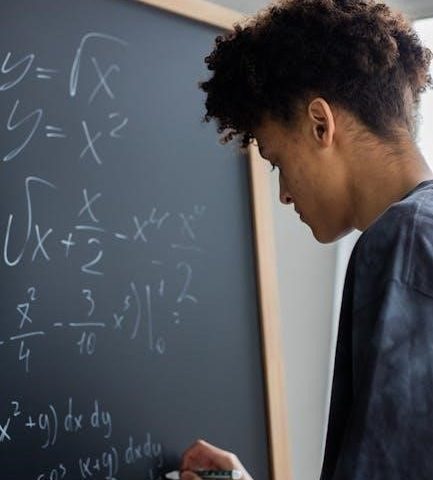 y = √x
y = x²
√x + x/2 - x⁴ - x⁴/2
x²/4 - 3/10 x⁵)|¹₀
x² + y) dx dy
cos (x+y) dxdy